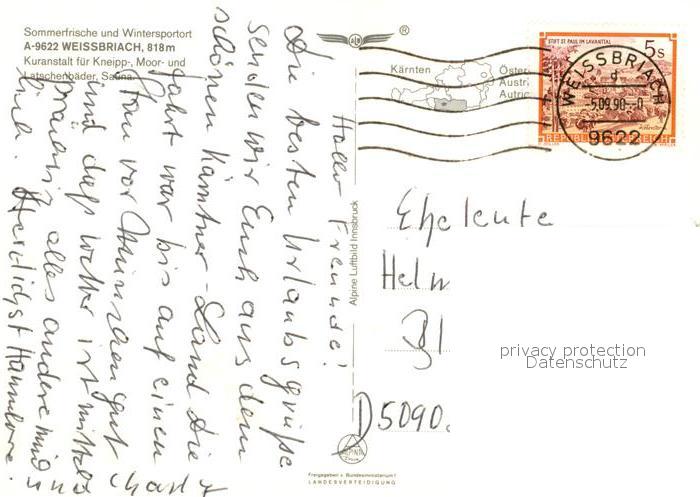 Sommerfrische und Wintersportort
A-9622 WEISSBRIACH, 818 m
Kuranstalt für Kneipp-, Moor- und
Latschenbäder, Sauna
Hallo Freunde!
Die besten Urlaubsgrüße
senden wir Euch aus dem
schönen Kärntner-Land die
Fahrt war bis auf einen
vor München gut
und das Wetter ist mittels
alles andere sind
Herzlichst Hannelore.
Alpine Luftbild Innsbruck
Kärnten
Öster
Austri
Autric
STIFT ST. PAUL IM LAVANTTAL
5s
REPUBLIK ÖSTERREICH
WEISSBRIACH
d
-5.09.90.-0
9622
Eheleute
Helm
D 5090.
privacy protection
Datenschutz
ALPINE
Freigegeben v. Bundesministerium f.
LANDESVERTEIDIGUNG